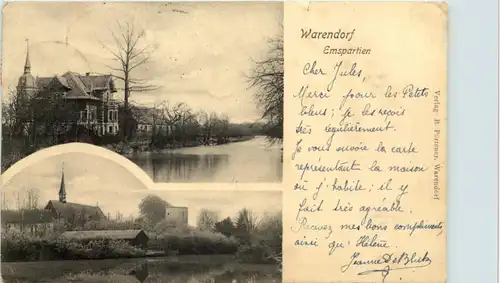 Warendorf
Emspartien
Cher Jules,
Merci pour les Petits
bleus; je les reçois
très régulièrement.
Je vous envoie la carte
représentant la maison
où j'habite; il y
fait très agréable.
Recevez mes bons compliments,
ainsi qu'Hélène.
Jeanne
Verlag B. Warendorf